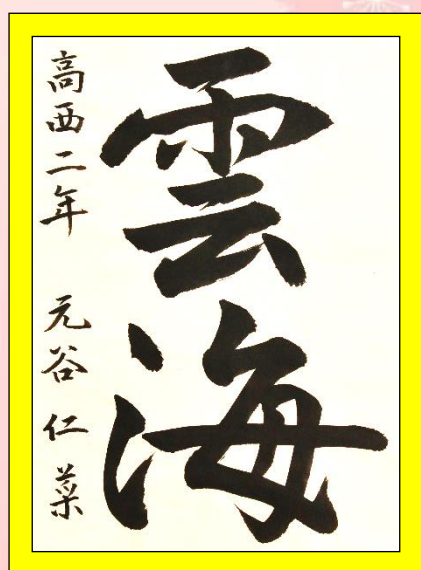 雲海
高西二年 元谷仁菜